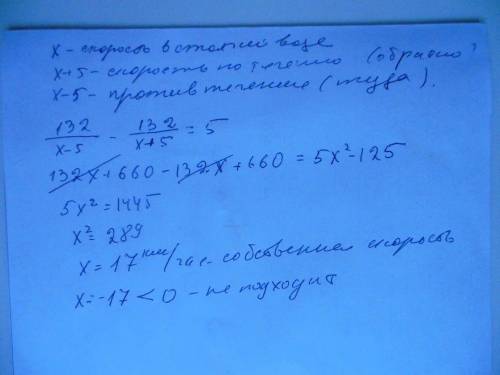 x – скорость в стоячей воде
x+5 – скорость по течению (обратно)
x-5 – против течения (туда).
132/(x-5) - 132/(x+5) = 5
132x+660-132x+660 = 5x²-125
5x²=1445
x²=289
x=17 км/час – собственная скорость
x=-17<0 – не подходит